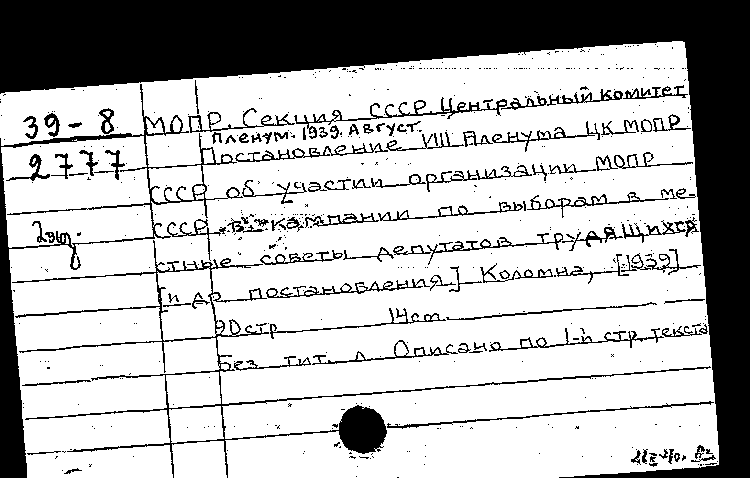 39-8
2777
2 экз.
МОПР. Секция СССР. Центральный Комитет
Пленум. 1939. Август.
Постановление VIII Пленума ЦК МОПР
СССР об участии организации МОПР
СССР в кампании по выборам в ме-
стные советы депутатов трудящихся
[и др постановления] Коломна, [1939]
20стр 14см.
Без тит. л Описано по 1-й стр. текста